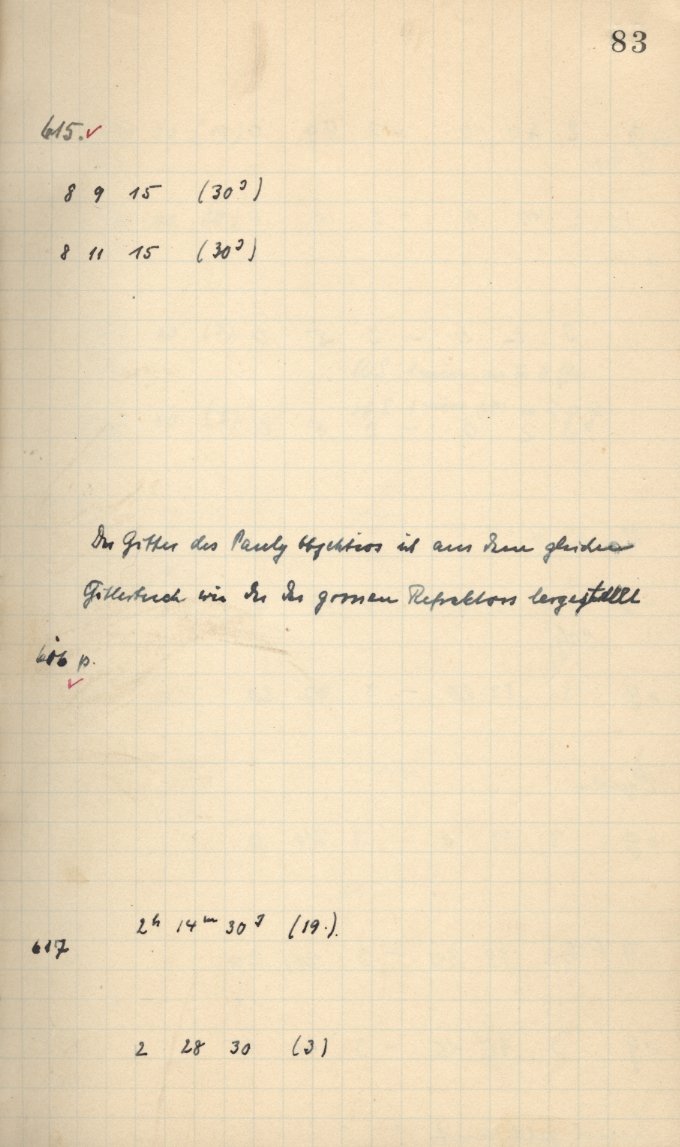 83
615. ✓
8 9 15 (30ˢ)
8 11 15 (30ˢ)
Das Gitter des Pauly Objektivs ist aus dem gleichen
Gittertuch wie der des grossen Refraktors hergestellt
616 p.
✓
2ʰ 14ᵐ 30ˢ (19.).
617
2 28 30 (3)